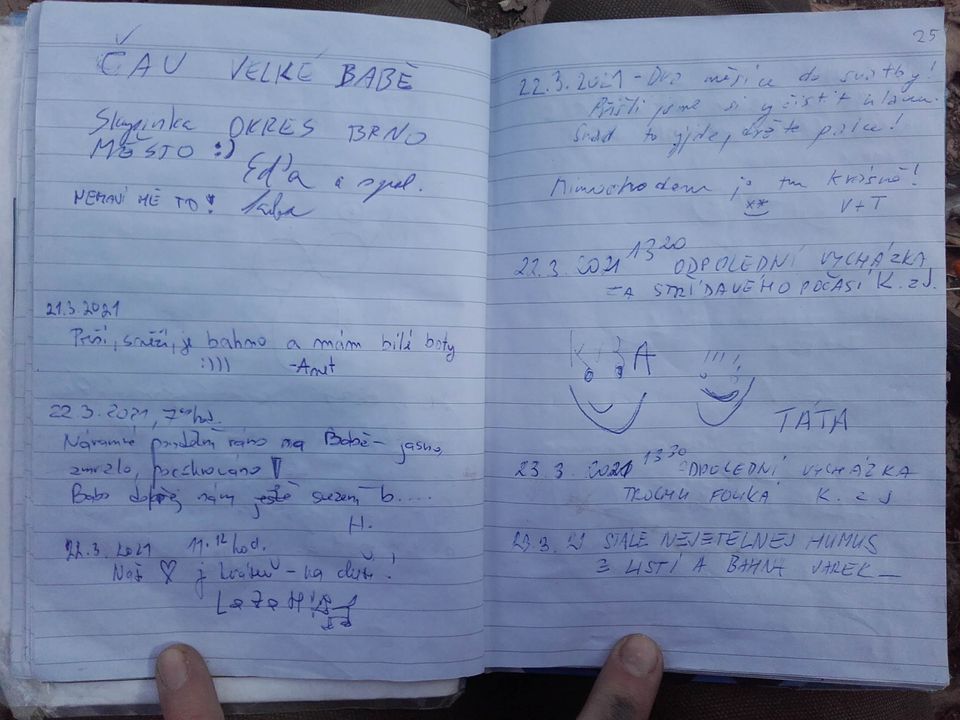 ČAU VELKÉ BABĚ
Skupinka OKRES BRNO
MĚSTO :)
Eďa a spol.
NEMAVÍ MĚ TO!
21.3.2021
Prší, sněží, je bahno a mám bílé boty
:)))) -Anet
22.3.2021, 7 hod.
Náramné pondělní ráno na Babě - jasno,
zmrzlo, pocukrováno!
Babo nám svezem b....
H.
22.3.2021 11.12 hod.
Náš ♡ je - na duši!
LaZaH
25
22.3.2021 - Dva měsíce do svatby!
Přišli jsme si vyčistit hlavu.
Snad to vyjde, držte palce!
Mimochodem je tu krásně!
V+T
22.3.2021 13 20 ODPOLEDNÍ VYCHÁZKA
ZA STŘÍDAVÉHO POČASÍ K. z J.
TÁTA
23.3.2021 13 30 ODPOLEDNÍ VYCHÁZKA
TROCHU FOUKÁ K. z J
23.3.21 STÁLE NESJETELNEJ HUMUS
Z LISTÍ A BAHNA JAREK